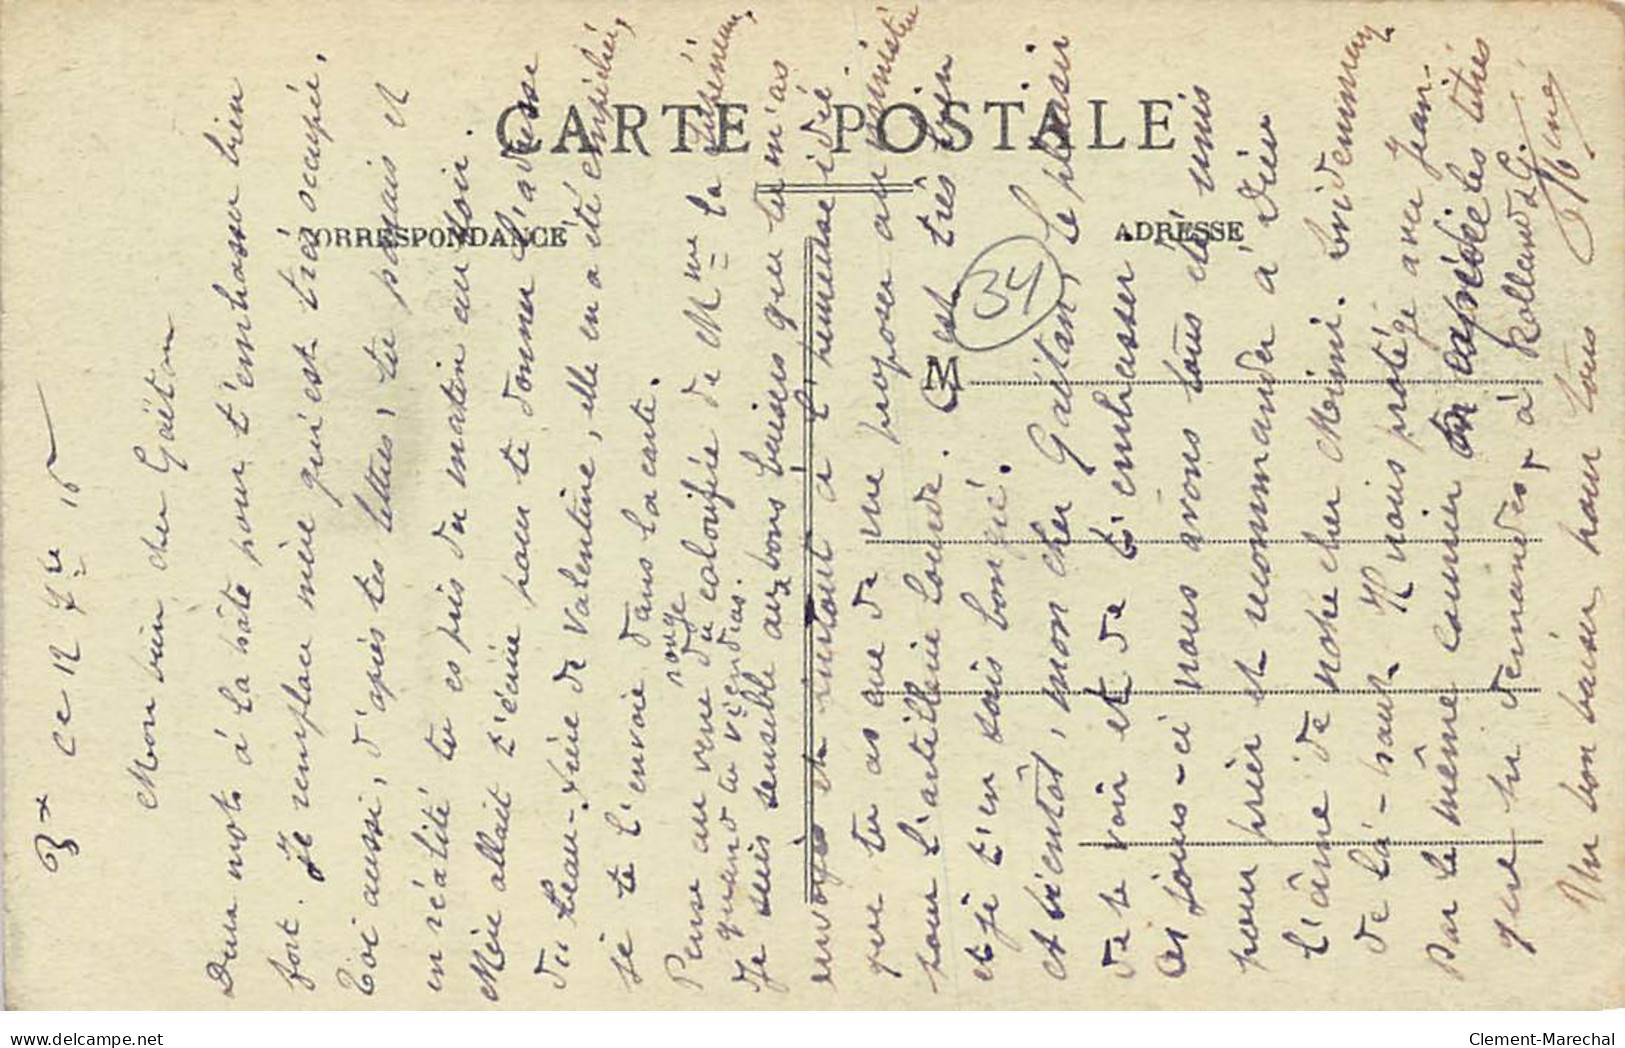 CARTE POSTALE
CORRESPONDANCE
ADRESSE
M
34
3x ce 12 7re 15
Mon bien cher Gaëtan
Deux mots à la hâte pour t'embrasser bien
fort. Je remplace mère qui est très occupée.
Toi aussi, d'après tes lettres, tu parais et
en réalité tu es pris du matin au soir.
Mère allait t'écrire pour te donner l'adresse
du beau-frère de Valentine, elle en a été empêchée,
je te l'envoie dans la carte.
Pense au verre rouge du de Mme la
quand tu viendras.
Je suis sensible aux bons baisers que tu m'as
envoyés et surtout à l'heureuse idée
que tu as eue de me proposer au ministère
pour l'artillerie lourde. C'est très bien
et je t'en sais bon gré.
et bientôt, mon cher Gaëtan, le plaisir
de te voir et de t'embrasser.
Ces jours-ci nous avons tous été unis
pour prier et recommander à Dieu
l'âme de notre cher Mimi. Evidemment
de là-haut il nous protège avec Jean.
Par le même courrier les titres
que tu demandes, à Rolland
Un bon baiser pour tous